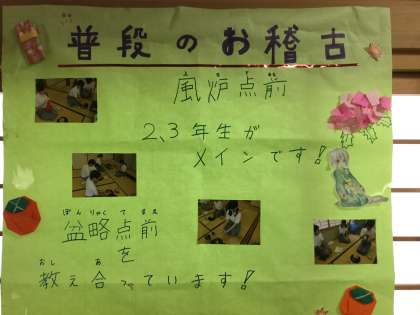 普段のお稽古
風炉点前
2、3年生が
メインです!
ぼんりゃくてまえ
盆略点前
を
おし あ
教え合っています!